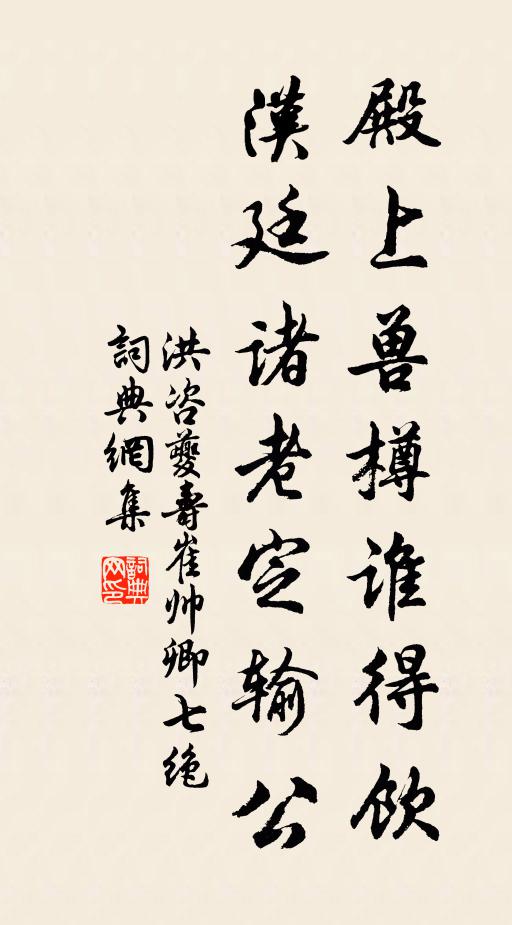 殿上兽樽谁得饮
漢廷诸老定输公
洪咨夔壽崔帅卿七绝
詞典網集
詞典网印